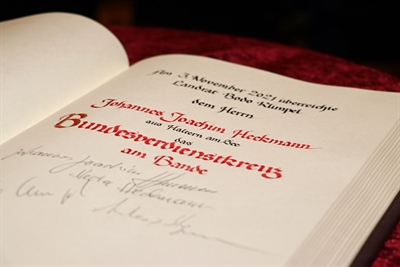 Am 3. November 2021 überreichte
Landrat Bodo Klimpel
dem Herrn
Johannes Joachim Heckmann
aus Haltern am See
das
Bundesverdienstkreuz
am Bande
Johannes Joachim
Heckmann